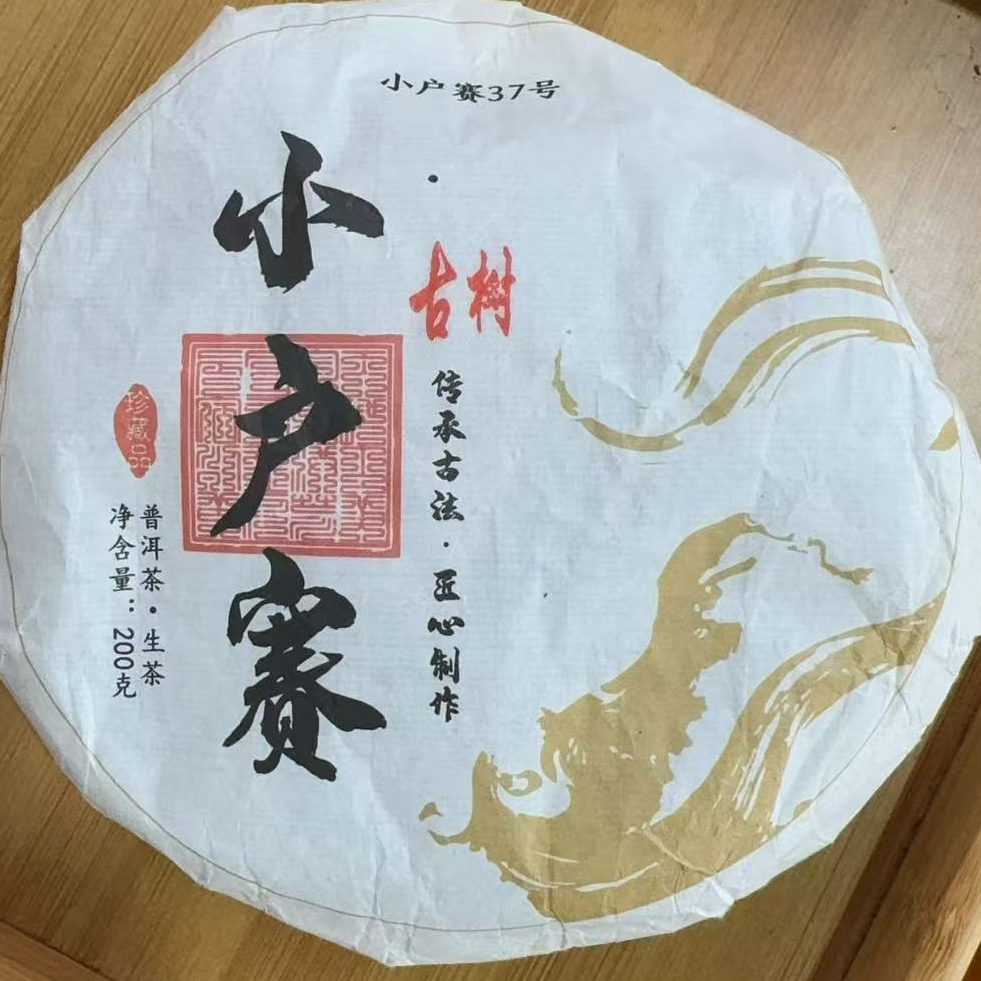 小户赛37号
小户赛
古树
传承古法·匠心制作
珍藏品
普洱茶·生茶
净含量：200克